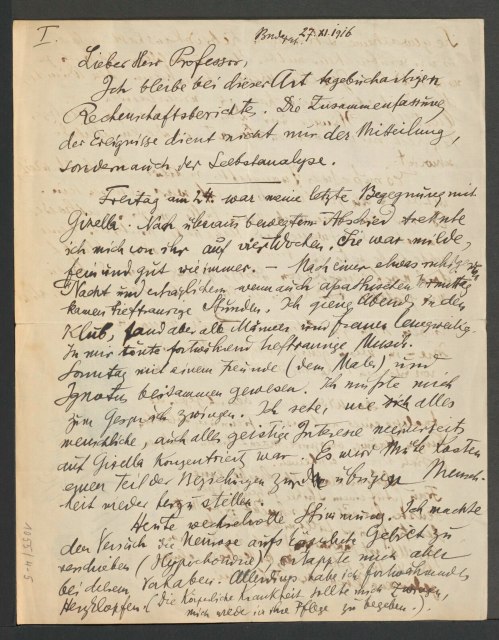 I.
Budapest, 27. XI. 1916
Lieber Herr Professor,
Ich bleibe bei dieser Art tagebuchartigen
Rechenschaftsberichte. Die Zusammenfassung
der Ereignisse dient nicht nur des Mitteilung,
sondern auch der Selbstanalyse.
Freitag am 24. war meine letzte Begegnung mit
Gisella. Nach überaus bewegtem Abschied trennte
ich mich von ihr auf vier Wochen. Sie war milde,
fein und gut wie immer. — Nach einer etwas
Nacht und erträglichem wenn auch apathischen
kamen tieftraurige Stunden. Ich gieng Abends in den
Klub, fand aber alle Männer und Frauen langweilig.
In mir tönte fortwährend tieftraurige Musik.
Sonntag mit einem Freunde (dem Maler) und
Ignotus beisammen gewesen. Ich mußte mich
zum Gespräch zwingen. Ich sehe, wie sich alles
menschliche, auch alles geistige Interesse meinerseits
auf Gisella konzentriert war. Es wird Mühe kosten
einen Teil der Beziehungen zur übrigen Mensch-
heit wieder herzustellen.
Heute wechselvolle Stimmung. Ich machte
den Versuch die Neurose aufs Gebiet zu
verschieben (Hypochondrie), ertappte mich aber
bei diesem Vorhaben. Allerdings habe ich fortwährendes
Herzklopfen. (die körperliche Krankheit sollte mich zwingen,
mich wieder in ihre Pflege zu begeben.).